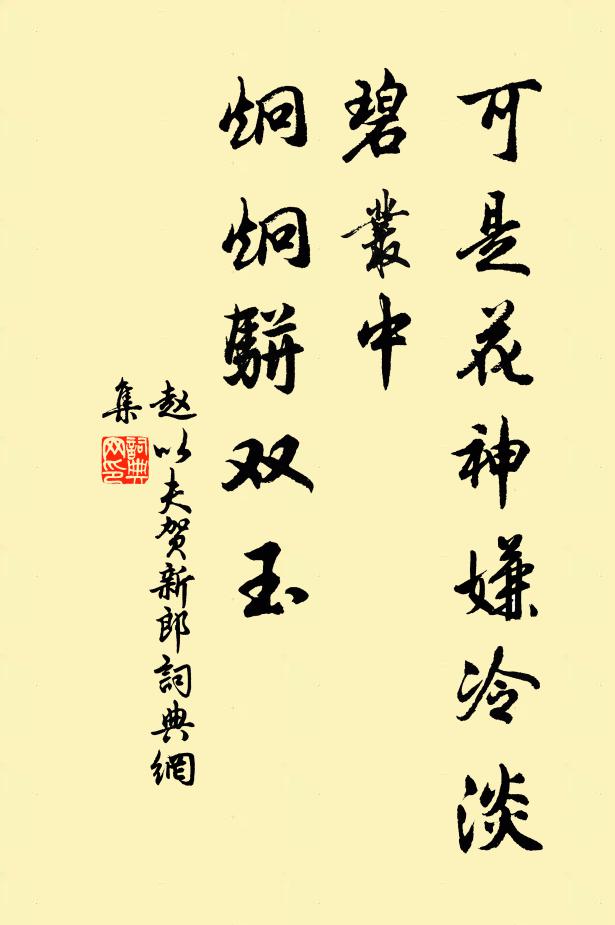 可是花神嫌冷淡
碧叢中
炯炯駢双玉
赵以夫贺新郎詞典網
集
詞典網印